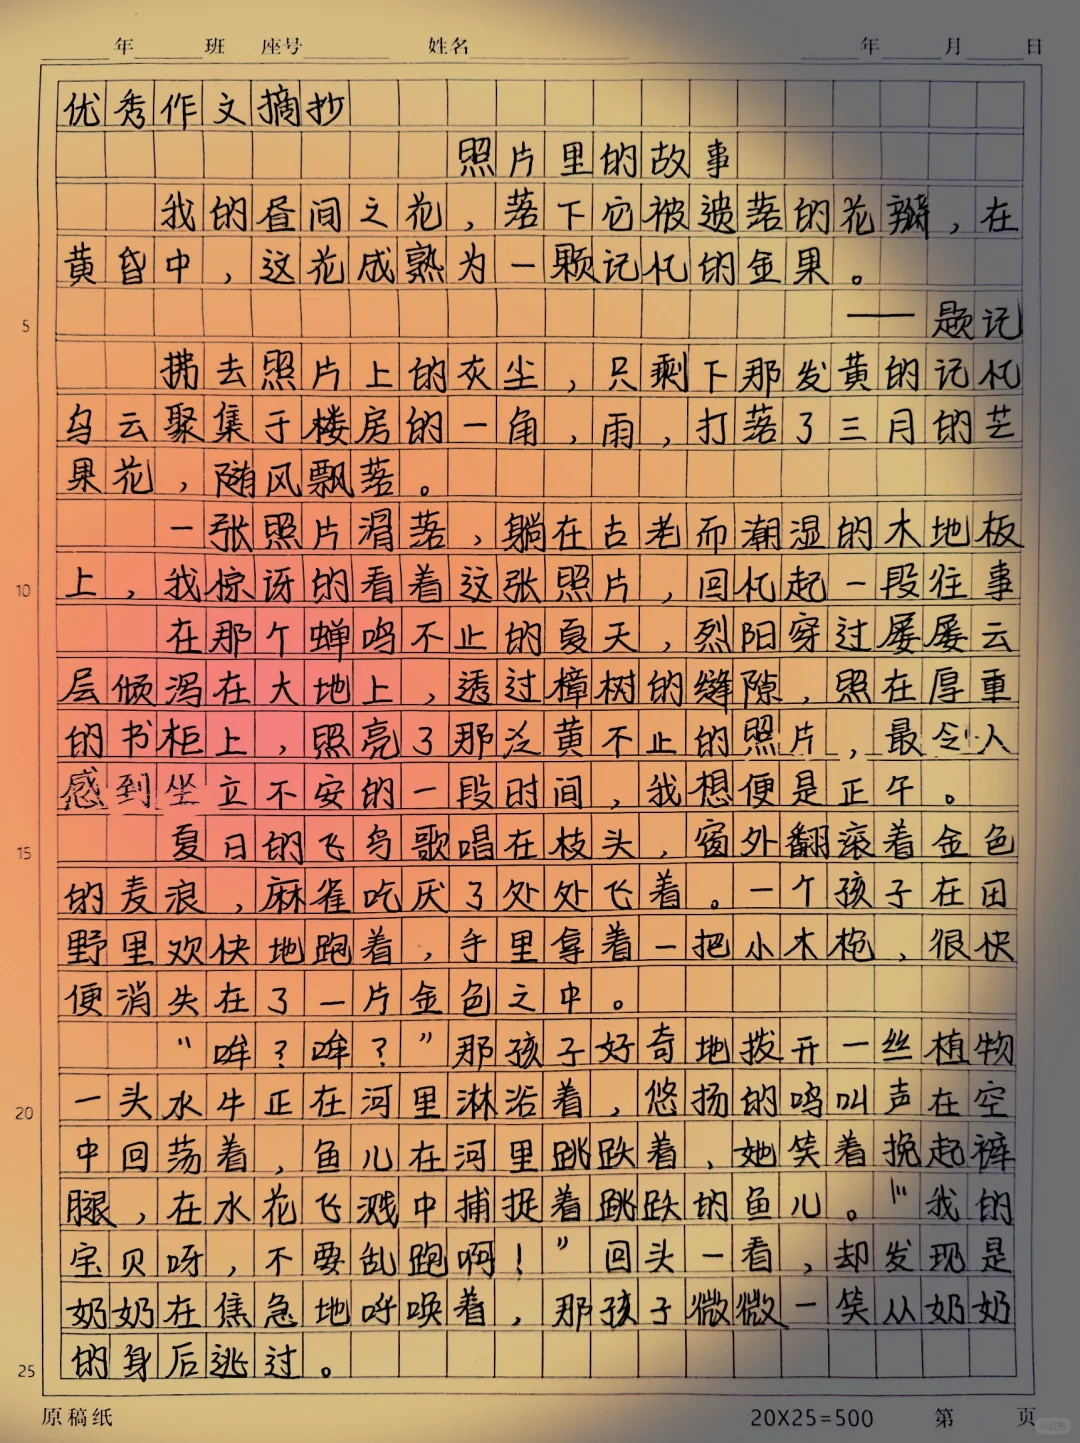 年 班 座号 姓名 年 月 日
优秀作文摘抄
照片里的故事
我的昼间之花，落下它被遗落的花瓣，在
黄昏中，这花成熟为一颗记忆的金果。
——题记
拂去照片上的灰尘，只剩下那发黄的记忆
乌云聚集于楼房的一角，雨，打落了三月的芒
果花，随风飘落。
一张照片滑落，躺在古老而潮湿的木地板
上，我惊讶的看着这张照片，回忆起一段往事
在那个蝉鸣不止的夏天，烈阳穿过屡屡云
层倾泻在大地上，透过樟树的缝隙，照在厚重
的书柜上，照亮了那泛黄不止的照片，最令人
感到坐立不安的一段时间，我想便是正午。
夏日的飞鸟歌唱在枝头，窗外翻滚着金色
的麦浪，麻雀吃厌了处处飞着。一个孩子在田
野里欢快地跑着，手里拿着一把小木枪，很快
便消失在了一片金色之中。
“哞？哞？”那孩子好奇地拨开一丝植物
一头水牛正在河里淋浴着，悠扬的鸣叫声在空
中回荡着，鱼儿在河里跳跃着，她笑着挽起裤
腿，在水花飞溅中捕捉着跳跃的鱼儿。“我的
宝贝呀，不要乱跑啊！”回头一看，却发现是
奶奶在焦急地呼唤着，那孩子微微一笑从奶奶
的身后逃过。
5
10
15
20
25
原稿纸 20X25=500 第 页